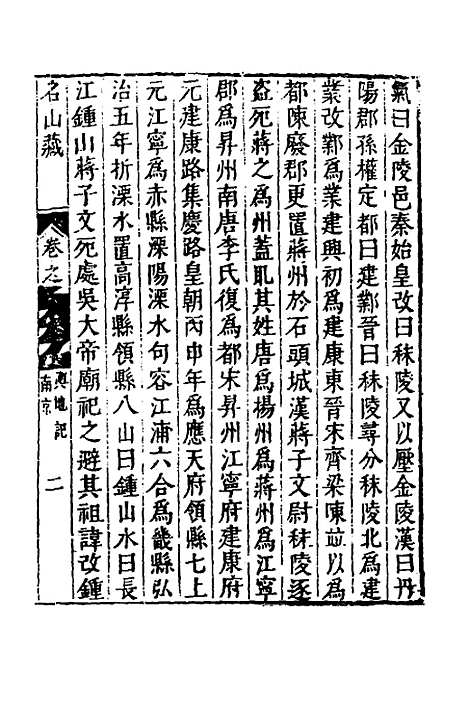 氣曰金陵邑秦始皇改曰秣陵又以壓金陵漢曰丹
陽郡孫權定都曰建鄴晉曰秣陵尋分秣陵北爲建
業改鄴爲業建興初爲建康東晉宋齊梁陳並以爲
都陳廢郡更置蔣州於石頭城漢蔣子文尉秣陵逐
盜死蔣之爲州蓋眂其姓唐爲楊州爲蔣州爲江寧
郡爲昇州南唐李氏復爲都宋昇州江寧府建康府
元建康路集慶路皇朝丙申年爲應天府領縣七上
元江寧爲赤縣溧陽溧水句容江浦六合爲畿縣弘
治五年折溧水置高淳縣領縣八山曰鍾山水曰長
江鍾山蔣子文死處吳大帝廟祀之避其祖諱改鍾
名山藏
卷之
輿地記
南京
二